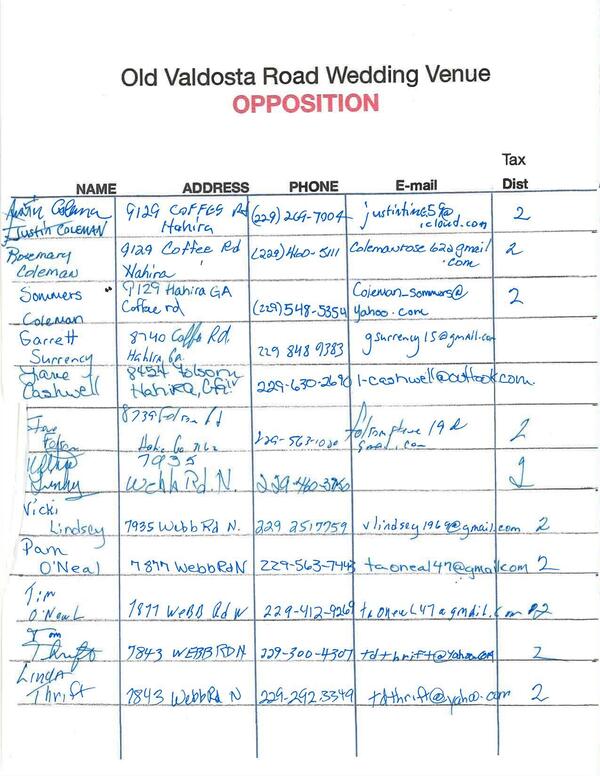 Old Valdosta Road Wedding Venue
OPPOSITION
Tax
NAME ADDRESS PHONE E-mail Dist
Justin Coleman 9129 Coffee Rd Hahira (229) 269-7004 justintime59@icloud.com 2
Rosemary Coleman 9129 Coffee Rd Hahira (229) 460-5111 Colemanrose62@gmail.com 2
Sommers Coleman 9129 Hahira GA Coffee rd (229) 548-5354 Coleman_Sommers@yahoo.com 2
Garrett Surrency 8740 Coffee Rd. Hahira, Ga. 229 848 9383 gsurrency15@gmail.com
Cashwell 8454 Folsom Hahira, GA 229-630-2690 l-cashwell@outlook.com
Folsom 8739 Folsom Rd 2
7935 Webb Rd. N. 229-460-3780 2
Vicki Lindsey 7935 Webb Rd N. 229 251 7759 vlindsey1969@gmail.com 2
Pam O'Neal 7877 Webb Rd N 229-563-7443 taoneal47@gmail.com 2
Tim O'Neal 7877 Webb Rd N 229-412-9269 taoneal47@gmail.com 2
Tom Thrift 7843 WEBB RD N 229-300-4307 tdthrift@yahoo.com 2
Linda Thrift 7843 Webb Rd N 229-292-3349 tdthrift@yahoo.com 2